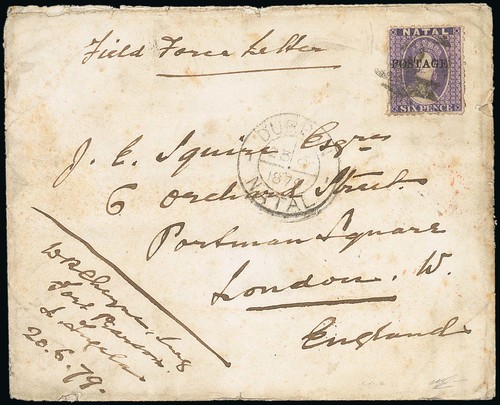 Field Force Letter
NATAL
POSTAGE
SIX PENCE
DURBAN
1879
NATAL
J. E. Squire Esqre
6 Orchard Street
Portman Square
London. W.
England
Fort Pearson
20.6.79.